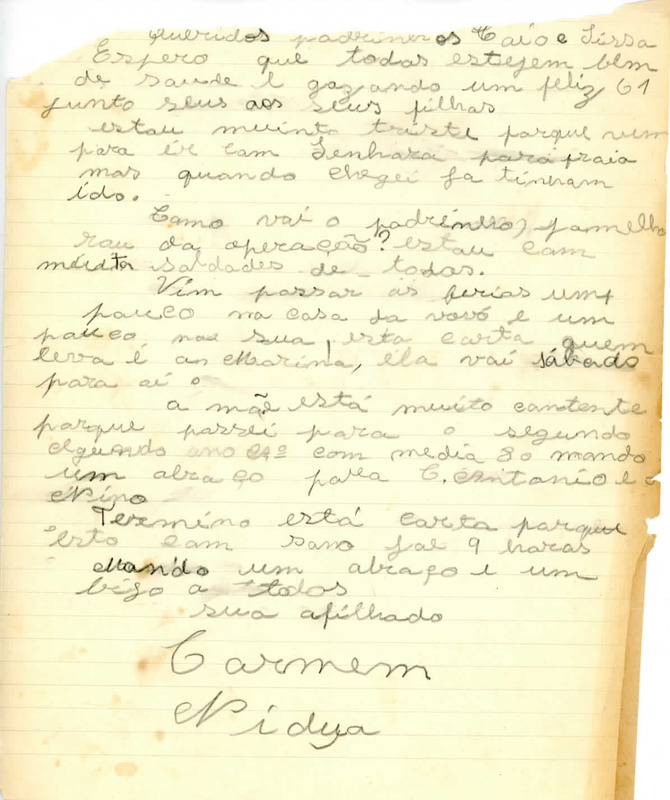 Queridos padrinhos Caio e Sissa
Espero que todos estejem bem
de saude e gozando um feliz 61
junto seus aos seus filhas
estou muinto triste porque vim
para ir com Senhora para praia
mas quando chegei ja tinham
ido.
Como vai o padrinho, ja melho
rou da operação? estou com
muita saldades de todos.
Vim passar as ferias um
pouco na casa da vovó e um
pouco na sua, esta carta quem
leva é a Marina, ela vai sábado
para aí o
a mãe está muito contente
porque passei para o segundo
segundo ano com media 80 mando
um abraço para C. Antonio e o
Nino
Termino está carta porque
esto com sono jae 9 horas
Mando um abraço e um
bijo a todos
sua afilhado
Carmem
Nidya